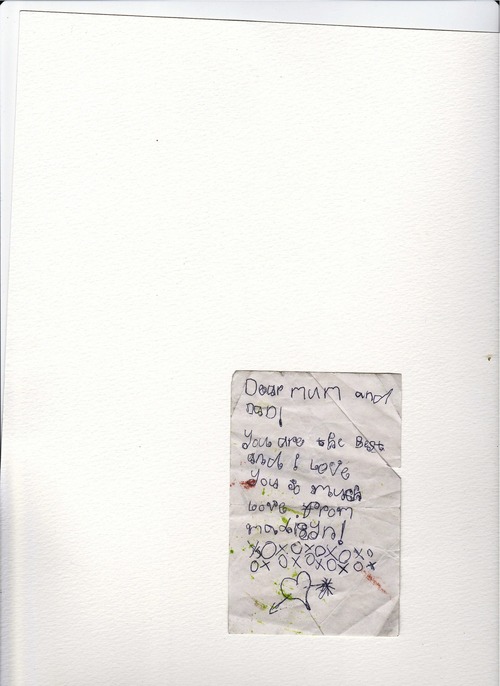 Dear mum and
DaD!
You are the Best
and I Love
You so much
Love From
madisyn!
XOXOXOXOXO
OXOXOXOXOX